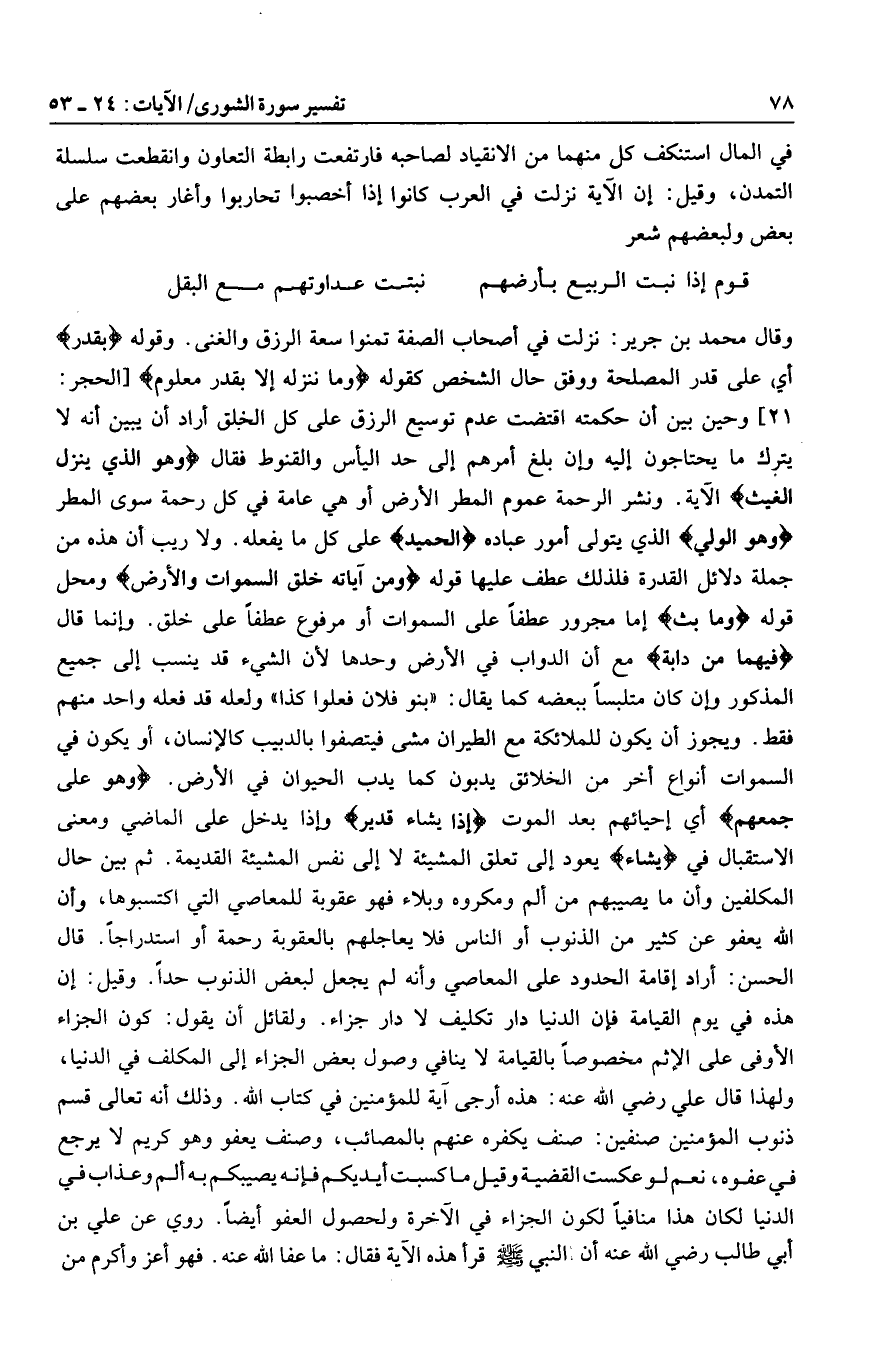 ٧٨ تفسير سورة الشورى/ الآيات: ٢٤ ـ ٥٣
في المال استنكف كل منهما من الانقياد لصاحبه فارتفعت رابطة التعاون وانقطعت سلسلة
التمدن، وقيل: إن الآية نزلت في العرب كانوا إذا أخصبوا تحاربوا وأغار بعضهم على
بعض ولبعضهم شعر
قوم إذا نبت الربيع بأرضهم نبتت عداوتهم مع البقل
وقال محمد بن جرير: نزلت في أصحاب الصفة تمنوا سعة الرزق والغنى. وقوله ﴿بقدر﴾
أي على قدر المصلحة ووفق حال الشخص كقوله ﴿وما ننزله إلا بقدر معلوم﴾ [الحجر:
٢١] وحين بين أن حكمته اقتضت عدم توسيع الرزق على كل الخلق أراد أن يبين أنه لا
يترك ما يحتاجون إليه وإن بلغ أمرهم إلى حد اليأس والقنوط فقال ﴿وهو الذي ينزل
الغيث﴾ الآية. ونشر الرحمة عموم المطر الأرض أو هي عامة في كل رحمة سوى المطر
﴿وهو الولي﴾ الذي يتولى أمور عباده ﴿الحميد﴾ على كل ما يفعله. ولا ريب أن هذه من
جملة دلائل القدرة فلذلك عطف عليها قوله ﴿ومن آياته خلق السموات والأرض﴾ ومحل
قوله ﴿وما بث﴾ إما مجرور عطفاً على السموات أو مرفوع عطفاً على خلق. وإنما قال
﴿فيهما من دابة﴾ مع أن الدواب في الأرض وحدها لأن الشيء قد ينسب إلى جميع
المذكور وإن كان متلبساً ببعضه كما يقال: «بنو فلان فعلوا كذا» ولعله قد فعله واحد منهم
فقط. ويجوز أن يكون للملائكة مع الطيران مشى فيتصفوا بالدبيب كالإنسان، أو يكون في
السموات أنواع أخر من الخلائق يدبون كما يدب الحيوان في الأرض. ﴿وهو على
جمعهم﴾ أي إحيائهم بعد الموت ﴿إذا يشاء قدير﴾ وإذا يدخل على الماضي ومعنى
الاستقبال في ﴿يشاء﴾ يعود إلى تعلق المشيئة لا إلى نفس المشيئة القديمة. ثم بين حال
المكلفين وأن ما يصيبهم من ألم ومكروه وبلاء فهو عقوبة للمعاصي التي اكتسبوها، وأن
الله يعفو عن كثير من الذنوب أو الناس فلا يعاجلهم بالعقوبة رحمة أو استدراجاً. قال
الحسن: أراد إقامة الحدود على المعاصي وأنه لم يجعل لبعض الذنوب حداً. وقيل: إن
هذه في يوم القيامة فإن الدنيا دار تكليف لا دار جزاء. ولقائل أن يقول: كون الجزاء
الأوفى على الإثم مخصوصاً بالقيامة لا ينافي وصول بعض الجزاء إلى المكلف في الدنيا،
ولهذا قال علي رضي الله عنه: هذه أرجى آية للمؤمنين في كتاب الله. وذلك أنه تعالى قسم
ذنوب المؤمنين صنفين: صنف يكفره عنهم بالمصائب، وصنف يعفو وهو كريم لا يرجع
في عفوه، نعم لو عكست القضية وقيل ما كسبت أيديكم فإنه يصيبكم به ألم وعذاب في
الدنيا لكان هذا منافياً لكون الجزاء في الآخرة ولحصول العفو أيضاً. روي عن علي بن
أبي طالب رضي الله عنه أن النبي ﷺ قرأ هذه الآية فقال: ما عفا الله عنه. فهو أعز وأكرم من